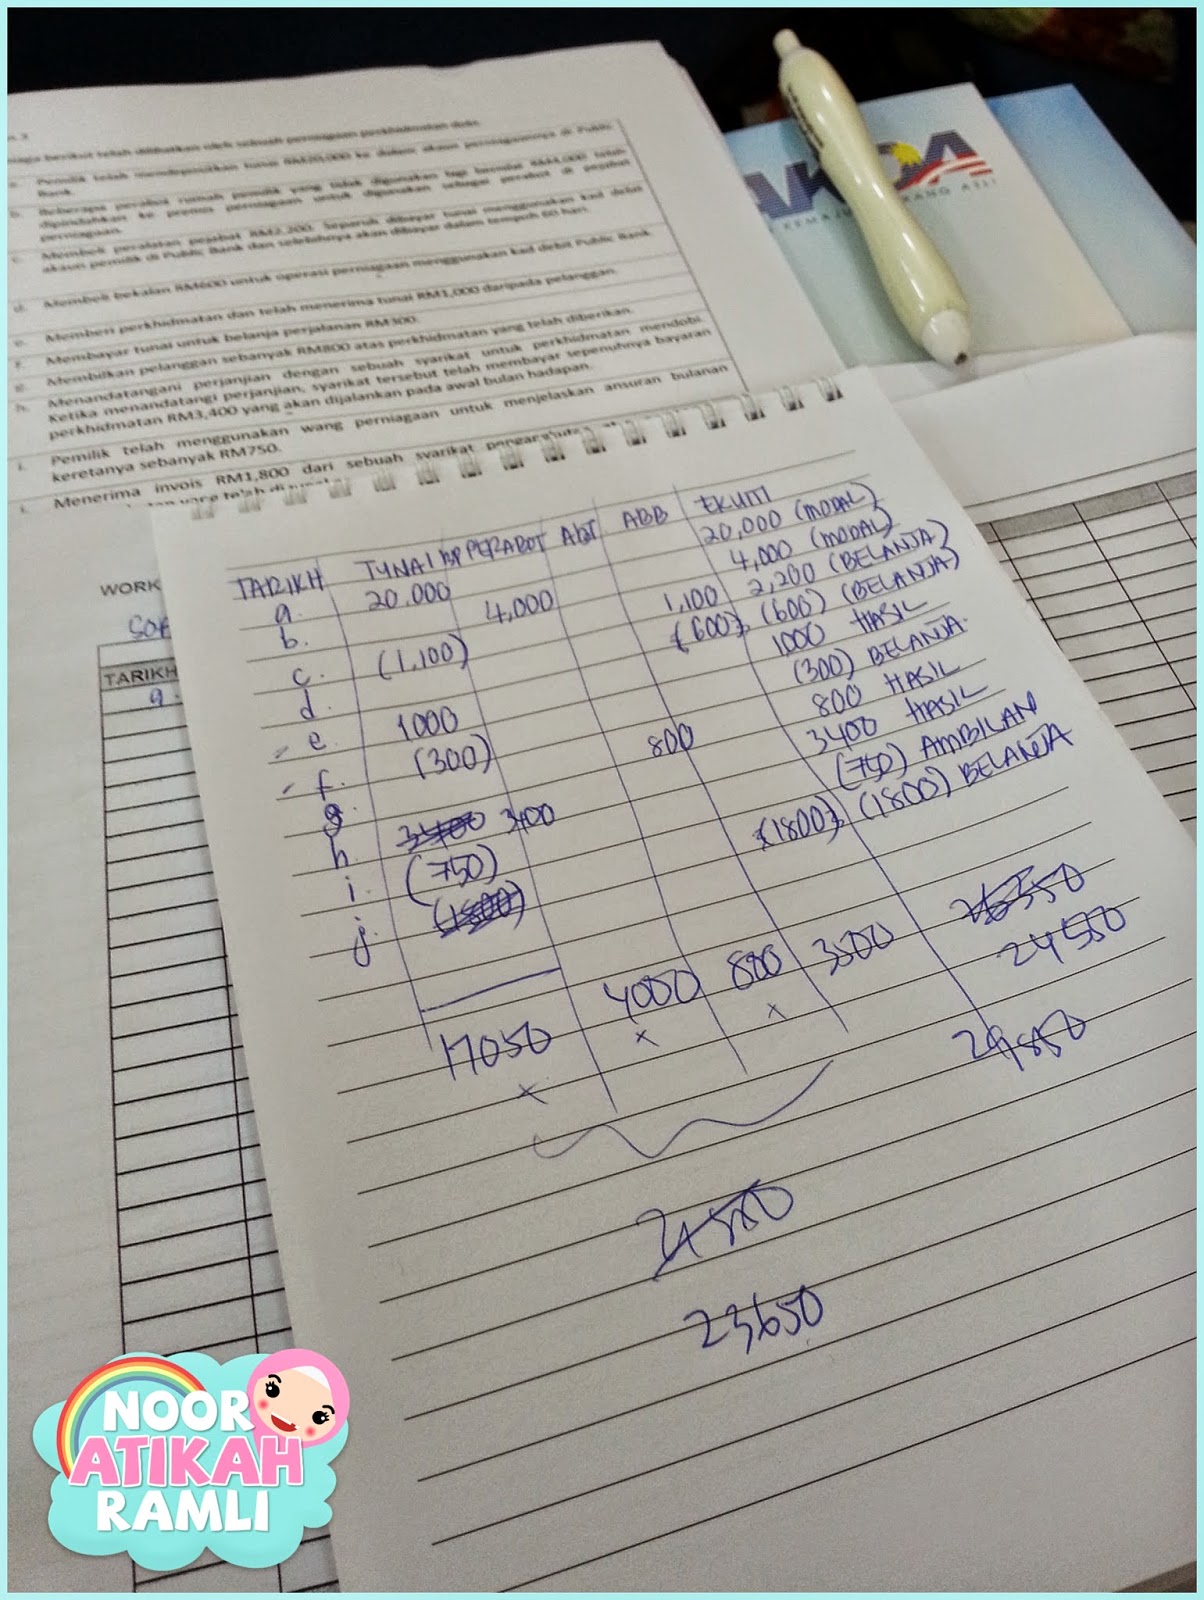 telah dilibatkan oleh sebuah perniagaan perkhidmatan dobi.
Pemilik telah mendepositkan tunai RM20,000 ke dalam akaun perniagaannya di Public
Bank.
b. Beberapa perabot rumah pemilik yang tidak digunakan lagi bernilai RM4,000 telah
dipindahkan ke premis perniagaan untuk digunakan sebagai perabot di pejabat
perniagaan.
c. Membeli peralatan pejabat RM2,200. Separuh dibayar tunai menggunakan kad debit
akaun pemilik di Public Bank dan selebihnya akan dibayar dalam tempoh 60 hari.
d. Membeli bekalan RM600 untuk operasi perniagaan menggunakan kad debit Public Bank.
e. Memberi perkhidmatan dan telah menerima tunai RM1,000 daripada pelanggan.
f. Membayar tunai untuk belanja perjalanan RM300.
g. Membilkan pelanggan sebanyak RM800 atas perkhidmatan yang telah diberikan.
h. Menandatangani perjanjian dengan sebuah syarikat untuk perkhidmatan mendobi.
Ketika menandatangi perjanjian, syarikat tersebut telah membayar sepenuhnya bayaran
perkhidmatan RM3,400 yang akan dijalankan pada awal bulan hadapan.
i. Pemilik telah menggunakan wang perniagaan untuk menjelaskan ansuran bulanan
keretanya sebanyak RM750.
Menerima invois RM1,800 dari sebuah syarikat
WORK
TARIKH
a.
TARIKH TUNAI PERABOT ABT ABB EKUITI
a. 20.000 20,000 (MODAL)
b. 4,000 4,000 (MODAL)
c. (1,100) 1,100 2,200 (BELANJA)
d. (600) (600) (BELANJA)
e. 1000 1000 HASIL
f. (300) (300) BELANJA
g. 800 800 HASIL
h 3400 3400 3400 HASIL
i. (750) (750) AMBILAN
j. (1800) (1800) (1800) BELANJA
26350
17050 4000 800 3500 24550
29850
23650
NOOR
ATIKAH
RAMLI